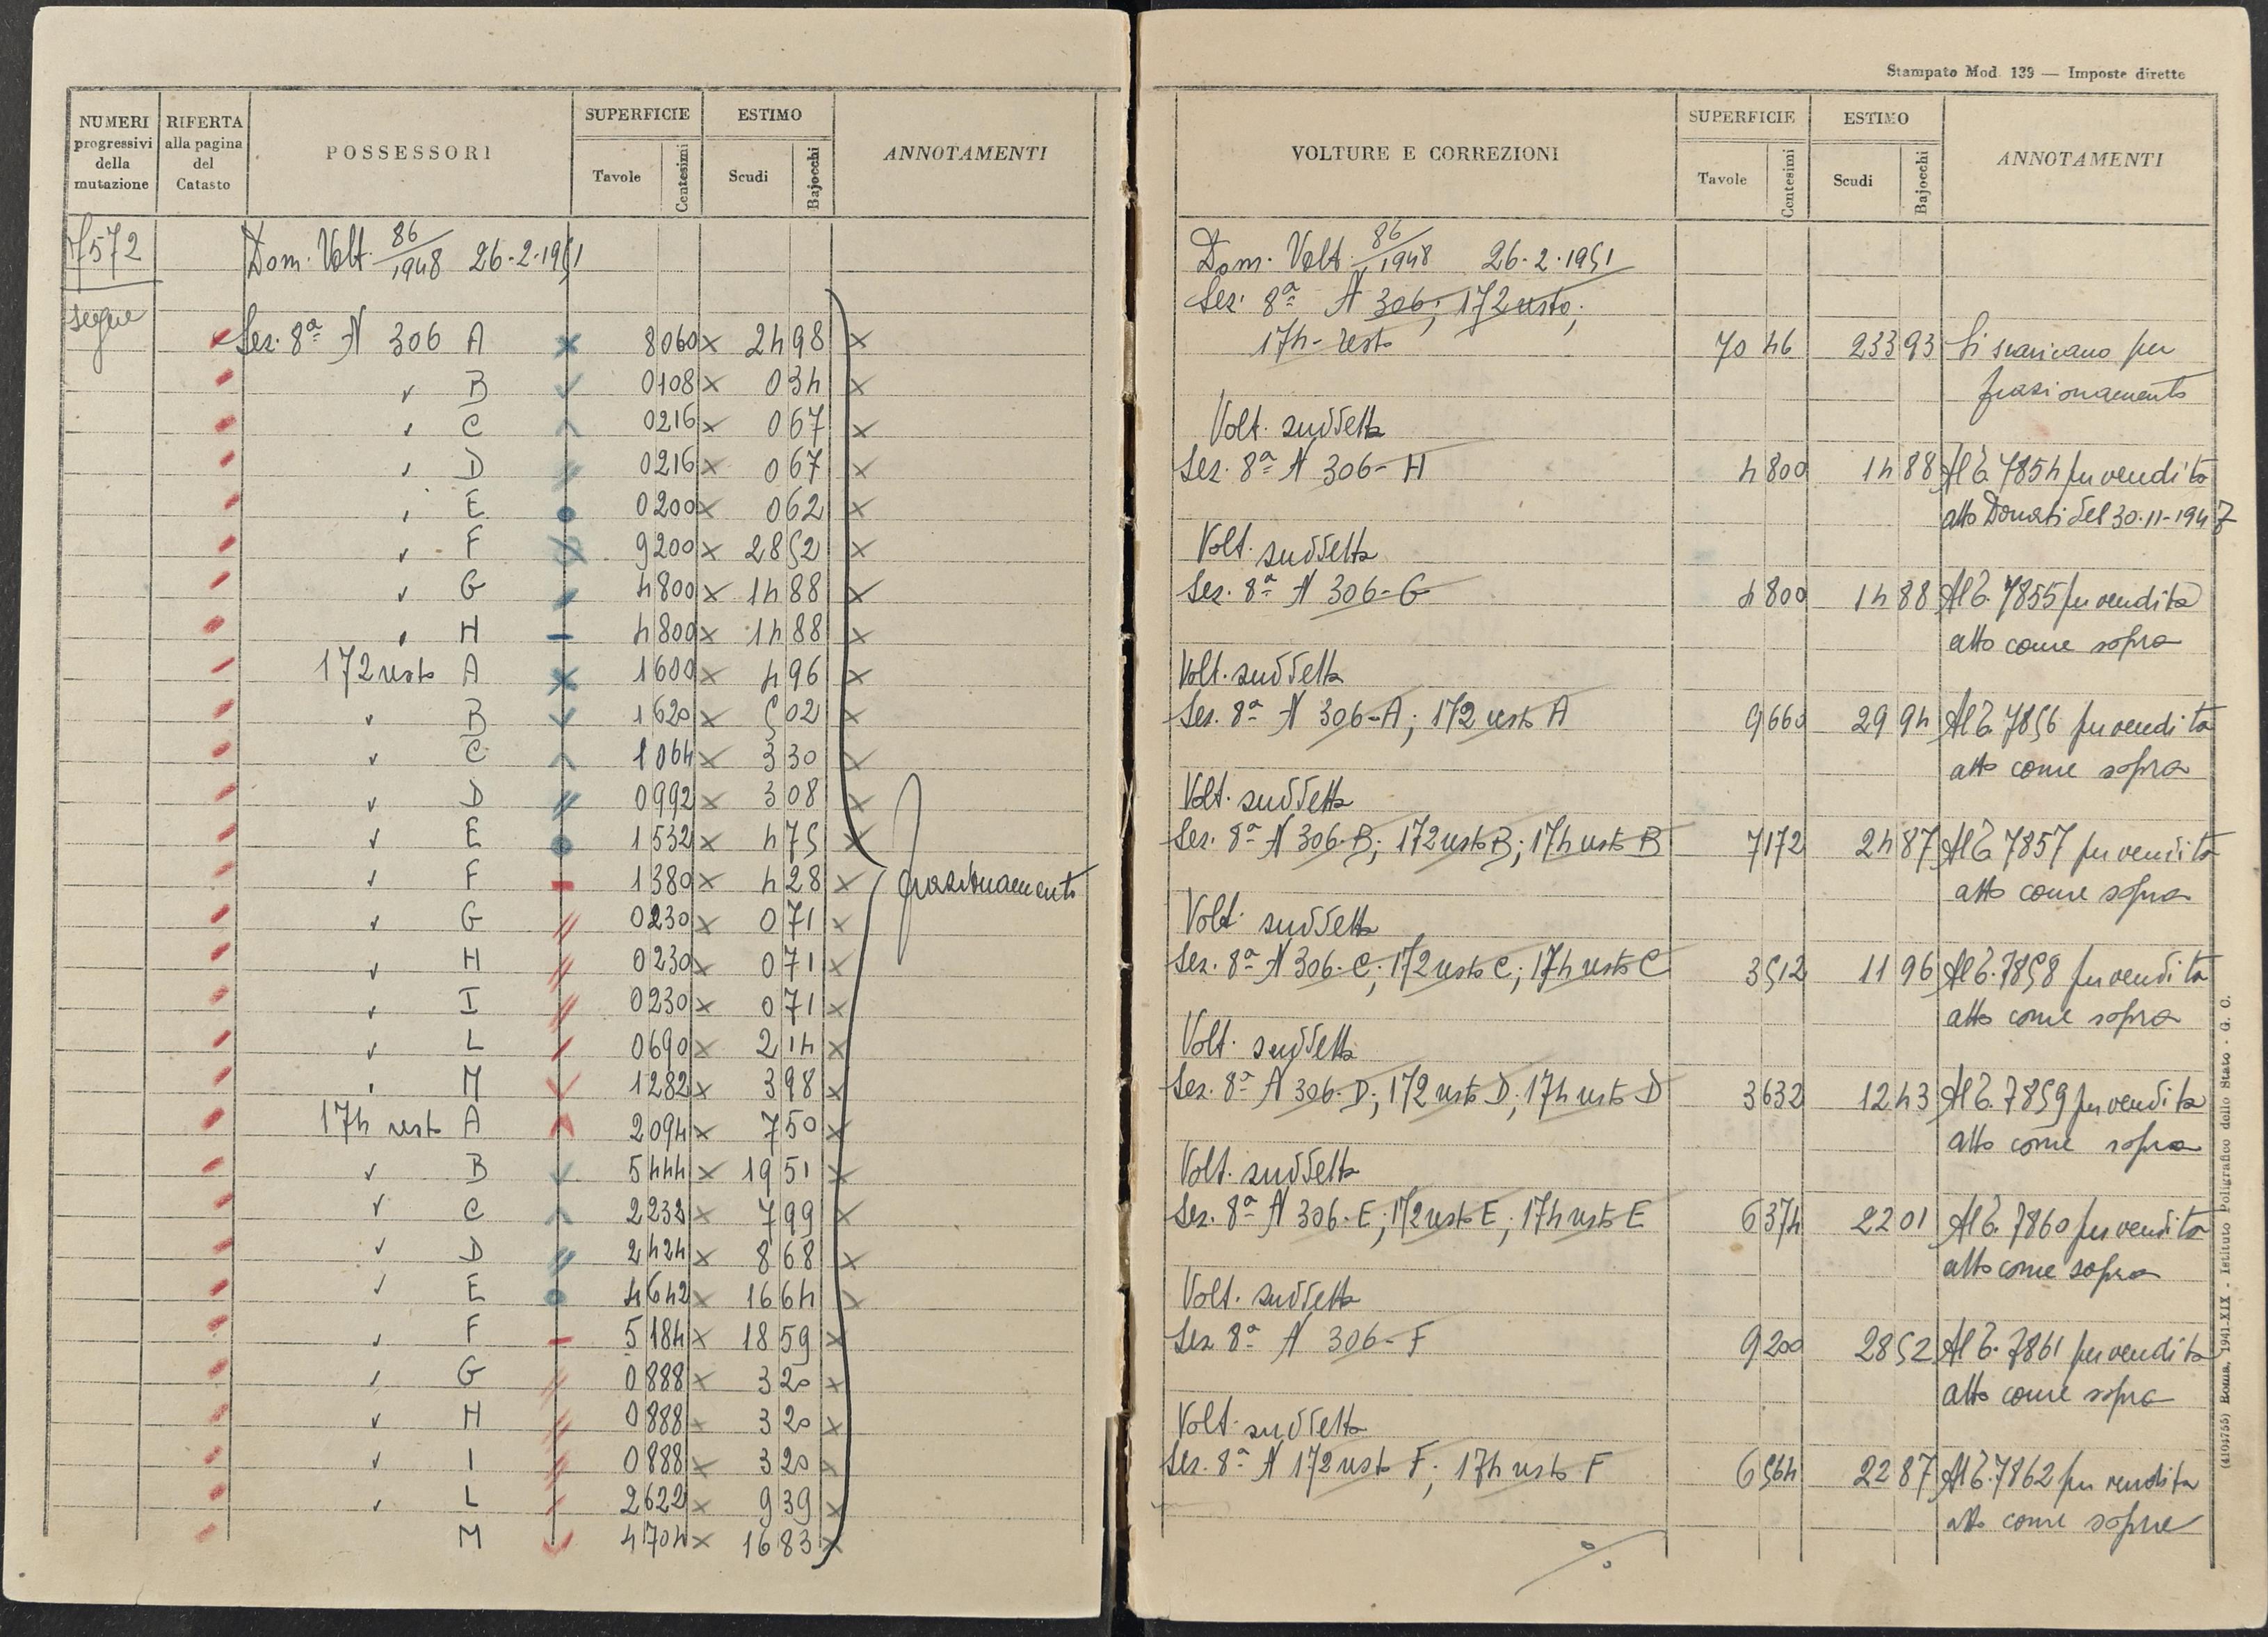 NUMERI progressivi della mutazione | RIFERTA alla pagina del Catasto | POSSESSORI | SUPERFICIE Tavole Centesimi | ESTIMO Scudi Bajocchi | ANNOTAMENTI
7572 Dom. Volt. 86/1948 26-2-1951
segue
Sez. 8ª N 306 A 8060 x 2498 x
" B 0108 x 034 x
" C 0216 x 067 x
" D 0216 x 067 x
" E 0200 x 062 x
" F 9200 x 2852 x
" G 4800 x 1488 x
" H 4800 x 1488 x
172 resto A 1600 x 496 x
" B 1620 x 502 x
" C 1064 x 330 x
" D 0992 x 308 x
" E 1532 x 475 x
" F 1380 x 428 x frazionamento
" G 0230 x 071 x
" H 0230 x 071 x
" I 0230 x 071 x
" L 0690 x 214 x
" M 1282 x 398 x
174 resto A 2094 x 750 x
" B 5444 x 1951 x
" C 2232 x 799 x
" D 2424 x 868 x
" E 4642 x 1664 x
" F 5184 x 1859 x
" G 0888 x 320 x
" H 0888 x 320 x
" I 0888 x 320 x
" L 2622 x 939 x
M 4704 x 1683 x
Stampato Mod. 139 — Imposte dirette
VOLTURE E CORREZIONI | SUPERFICIE Tavole Centesimi | ESTIMO Scudi Bajocchi | ANNOTAMENTI
Dom. Volt. 86/1948 26-2-1951
Sez. 8ª N 306; 172 resto;
174 - resto 70 46 2393 Si scaricano per
frazionamento
Volt. suddetta
Sez. 8ª N 306 - H 4800 1488 Al C. 7854 per vendita
atto Donati del 30-11-1947
Volt. suddetta
Sez. 8ª N 306 - G 4800 1488 Al C. 7855 per vendita
atto come sopra
Volt. suddetta
Sez. 8ª N 306 - A; 172 resto A 9660 2994 Al C. 7856 per vendita
atto come sopra
Volt. suddetta
Sez. 8ª N 306 - B; 172 resto B; 174 resto B 7172 2487 Al C. 7857 per vendita
atto come sopra
Volt. suddetta
Sez. 8ª N 306 - C; 172 resto C; 174 resto C 3512 1196 Al C. 7858 per vendita
atto come sopra
Volt. suddetta
Sez. 8ª N 306 - D; 172 resto D; 174 resto D 3632 1243 Al C. 7859 per vendita
atto come sopra
Volt. suddetta
Sez. 8ª N 306 - E; 172 resto E; 174 resto E 6374 2201 Al C. 7860 per vendita
atto come sopra
Volt. suddetta
Sez. 8ª N 306 - F 9200 2852 Al C. 7861 per vendita
atto come sopra
Volt. suddetta
Sez. 8ª N 172 resto F; 174 resto F 6564 2287 Al C. 7862 per vendita
atto come sopra
(4104755) Roma, 1941-XIX - Istituto Poligrafico dello Stato - G. C.